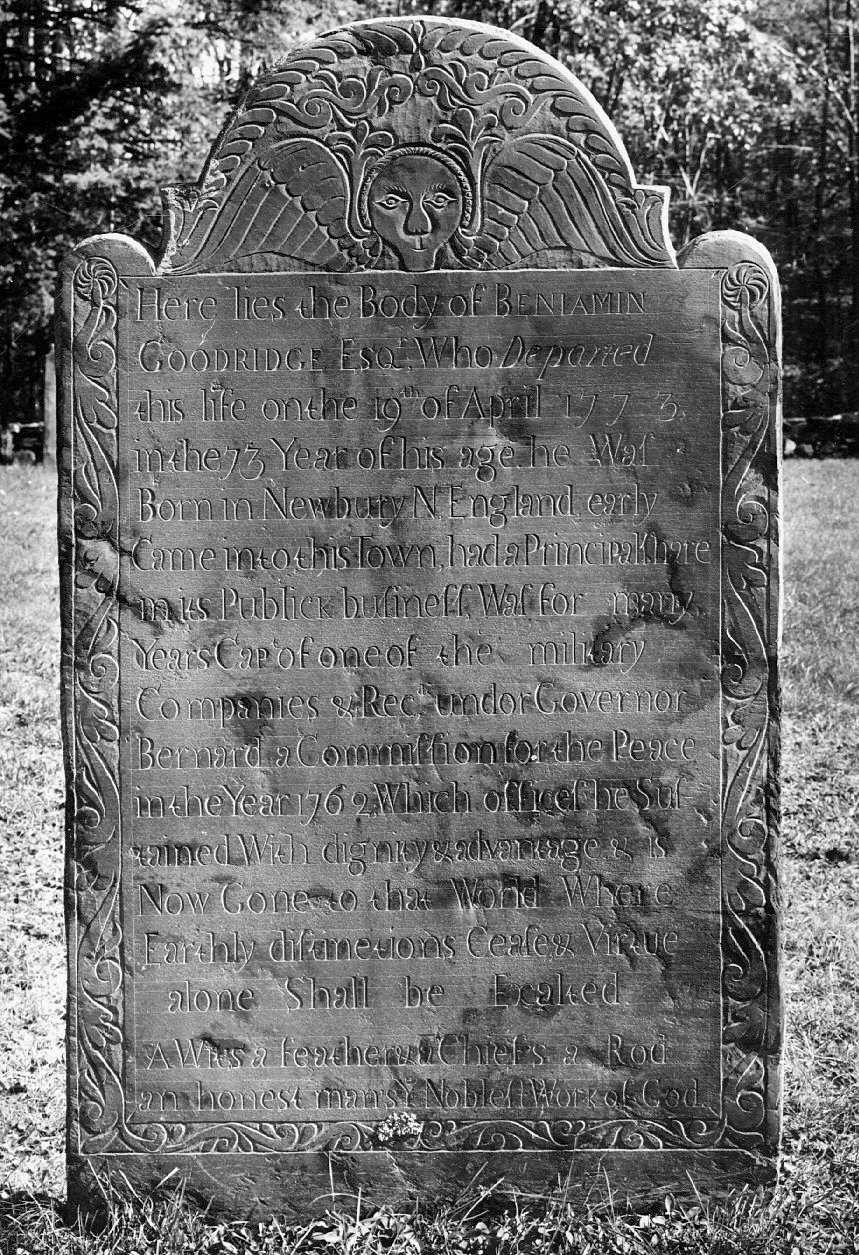 Here lies the Body of BENIAMIN
GOODRIDGE ESQʳ, Who Departed
this life on the 19ᵗʰ Of April 1773,
in the 73 Year of his age. he Waſ
Born in Newbury N England early
Came into this Town, had a Principal ſhare
in its Publick buſineſſ, Waſ for many
Years Capᵗ of one of the military
Companies & Recᵈ undor Governor
Bernard a Commiſſion for the Peace
in the Year 1762, Which officeſ he Suſ-
tained With dignity & advantage & is
Now Gone to that World Where
Earthly diſtinctions Ceaſe & Virtue
alone Shall be Exalted
A Wits a feather & a Chiefs a Rod
an honest man's yᵉ Nobleſt Work of God